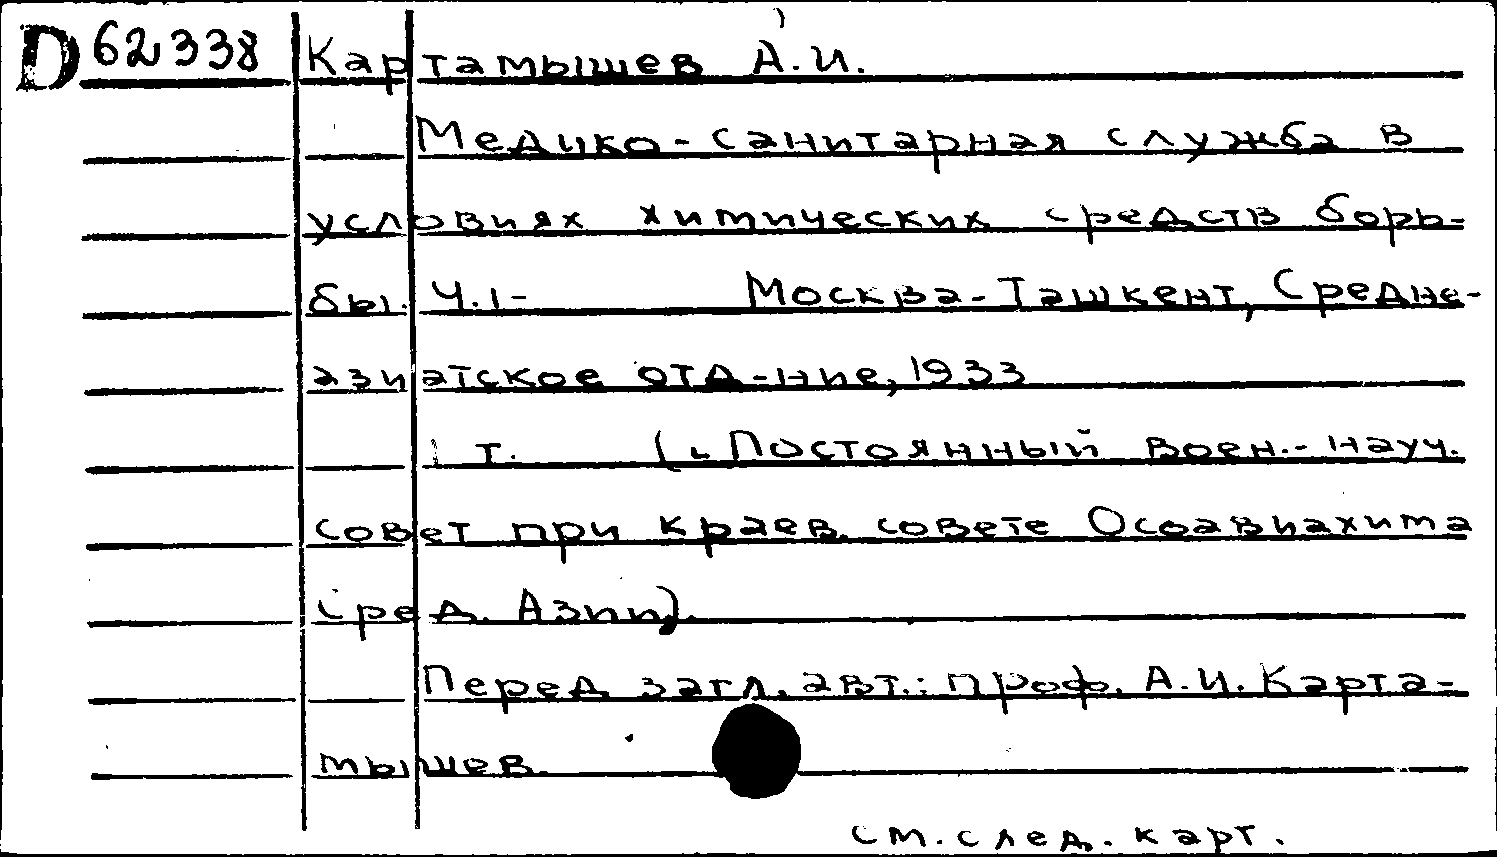 D 62338 Картамышев А.И.
Медико-санитарная служба в
условиях химических средств борь-
бы. Ч.1- Москва-Ташкент, Средне-
азиатское отд-ние, 1933
1 т. (Постоянный воен.-науч.
совет при краев. совете Осоавиахима
Сред. Азии).
Перед загл. авт.: проф. А.И. Карта-
мышев.
см. след. карт.